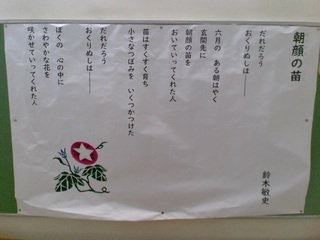 朝顔の苗
鈴木敏史
だれだろう
おくりぬしは――
六月の ある朝はやく
玄関先に
朝顔の苗を
おいていってくれた人
苗はすくすく育ち
小さなつぼみを いくつかつけた
だれだろう
おくりぬしは――
ぼくの 心の中に
さわやかな花を
咲かせていってくれた人